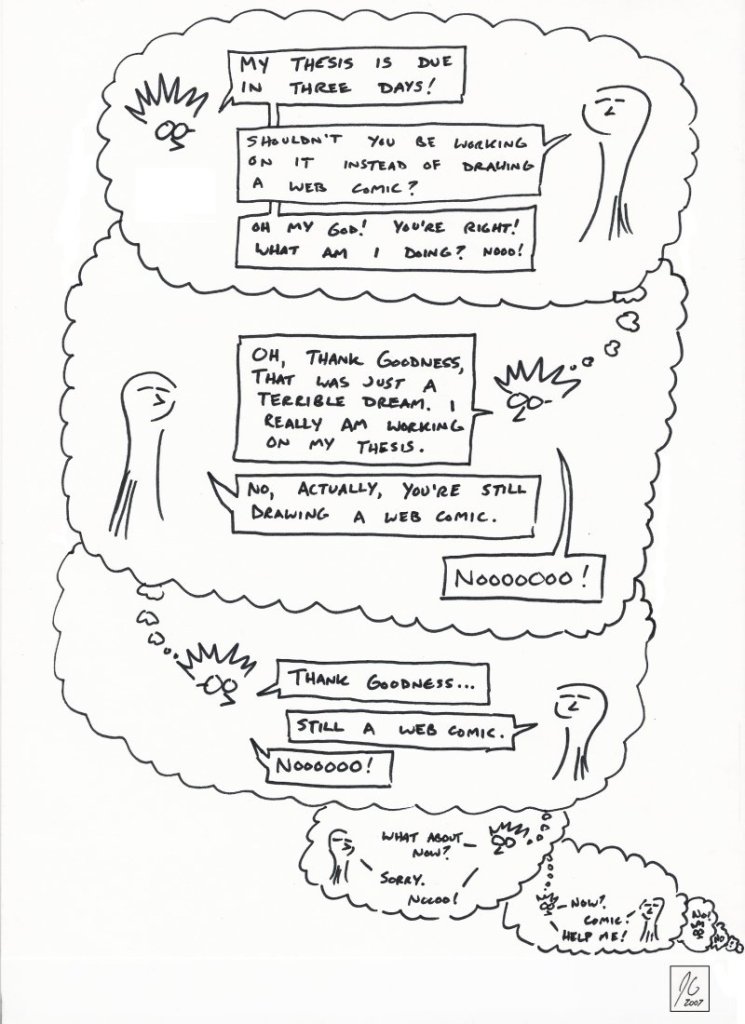 MY THESIS IS DUE
IN THREE DAYS!
SHOULDN'T YOU BE WORKING
ON IT INSTEAD OF DRAWING
A WEB COMIC?
OH MY GOD! YOU'RE RIGHT!
WHAT AM I DOING? NOOO!
OH, THANK GOODNESS,
THAT WAS JUST A
TERRIBLE DREAM. I
REALLY AM WORKING
ON MY THESIS.
NO, ACTUALLY, YOU'RE STILL
DRAWING A WEB COMIC.
NOOOOOOO!
THANK GOODNESS...
STILL A WEB COMIC.
NOOOOOO!
WHAT ABOUT
NOW?
SORRY.
NOOOO!
NOW?
COMIC.
HELP ME!
NO!
NO
JG
2007